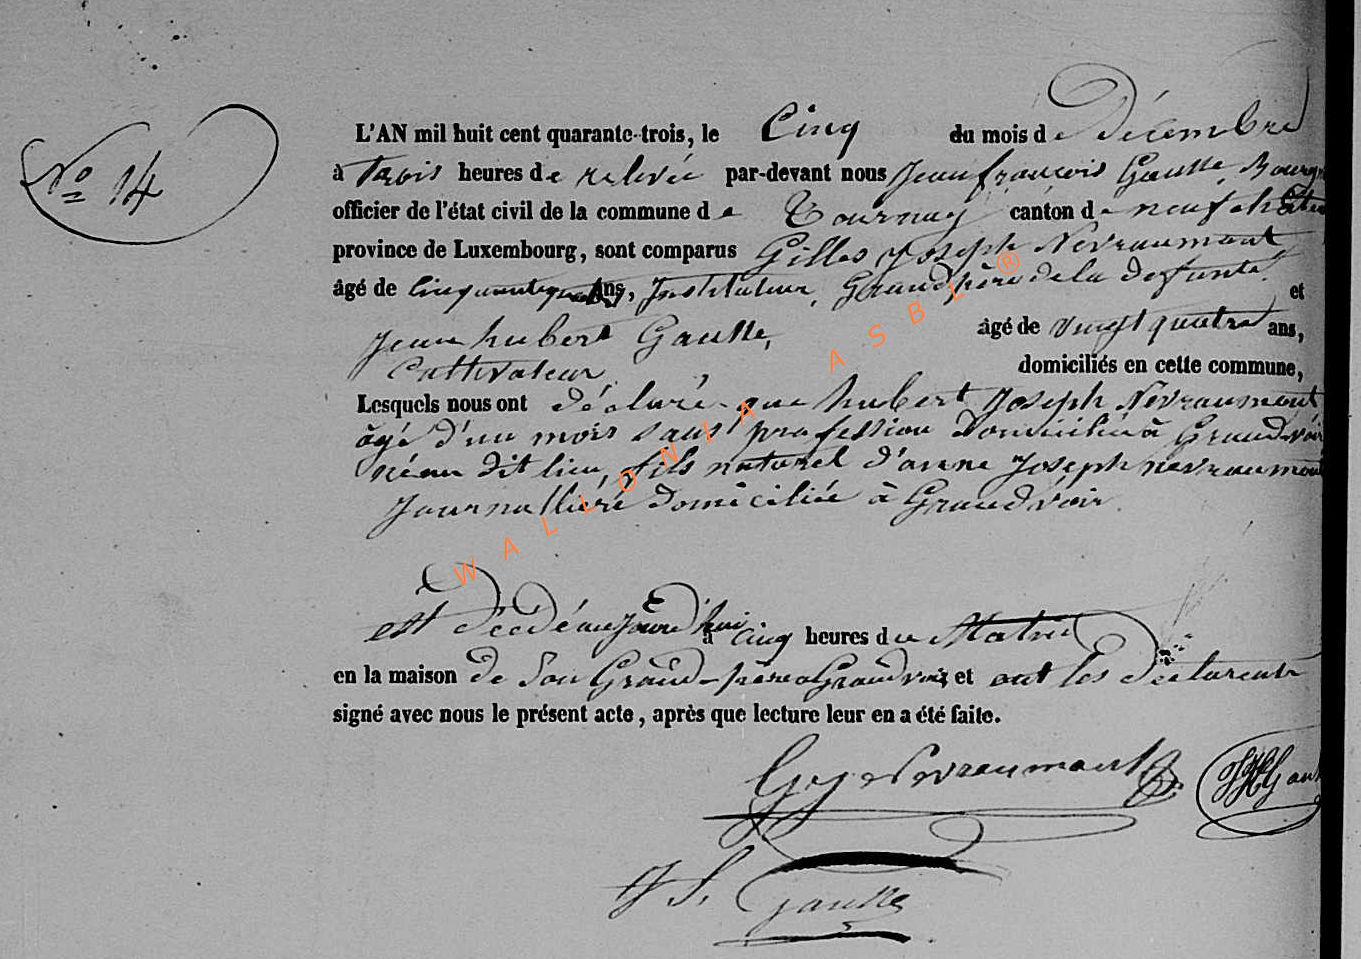 N° 14
L'AN mil huit cent quarante-trois, le Cinq du mois de Décembre
à trois heures de relevée par-devant nous Jean françois Gausse Bourgm
officier de l'état civil de la commune de Tournay canton de neufchâteau
province de Luxembourg, sont comparus Gilles Joseph Nevraumont
âgé de Cinquante quatre ans, Instituteur, Grand père de la defunte. et
Jean hubert Gausse, âgé de vingt quatre ans,
Cultivateur domiciliés en cette commune,
Lesquels nous ont déclaré que hubert Joseph Nevraumont
âgé d'un mois sans profession Domicilié à Grandvoir
néau dit lieu, fils naturel d'anne Joseph nevraumont
Journalliére domiciliée à Grandvoir.
est décédé aujourd'hui à Cinq heures du Matin
en la maison de Son Grand-père a Grandvoir et ont les déclarants
signé avec nous le présent acte, après que lecture leur en a été faite.
G J Nevraumont JH Gauss
J f. Gausse
WALLONIA ASBL ®